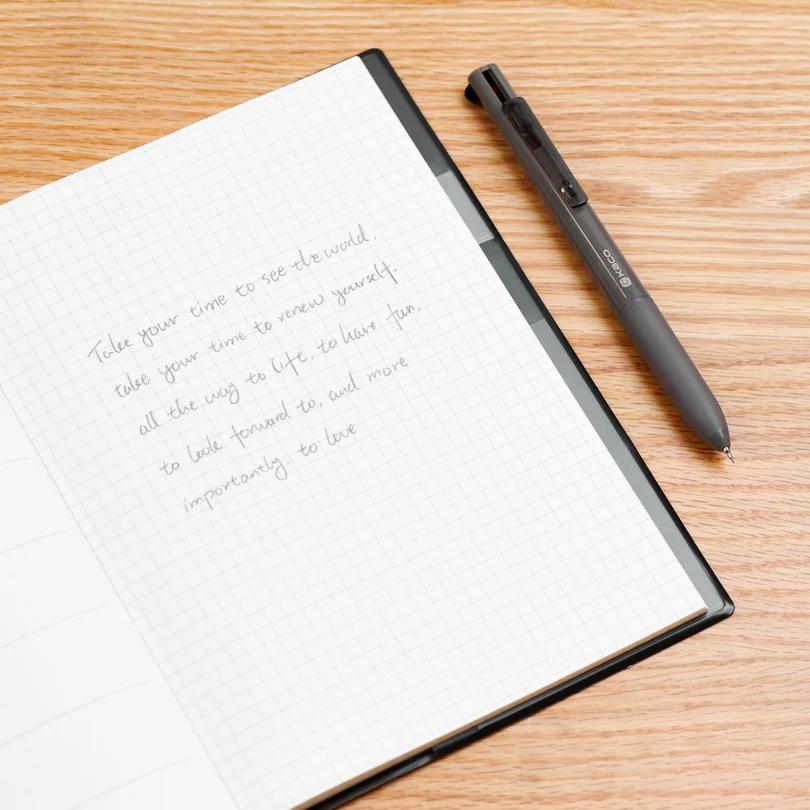 Take your time to see the world.
take your time to renew yourself.
all the way to lift. to have fun.
to look forward to, and more
importantly. to love
KACO